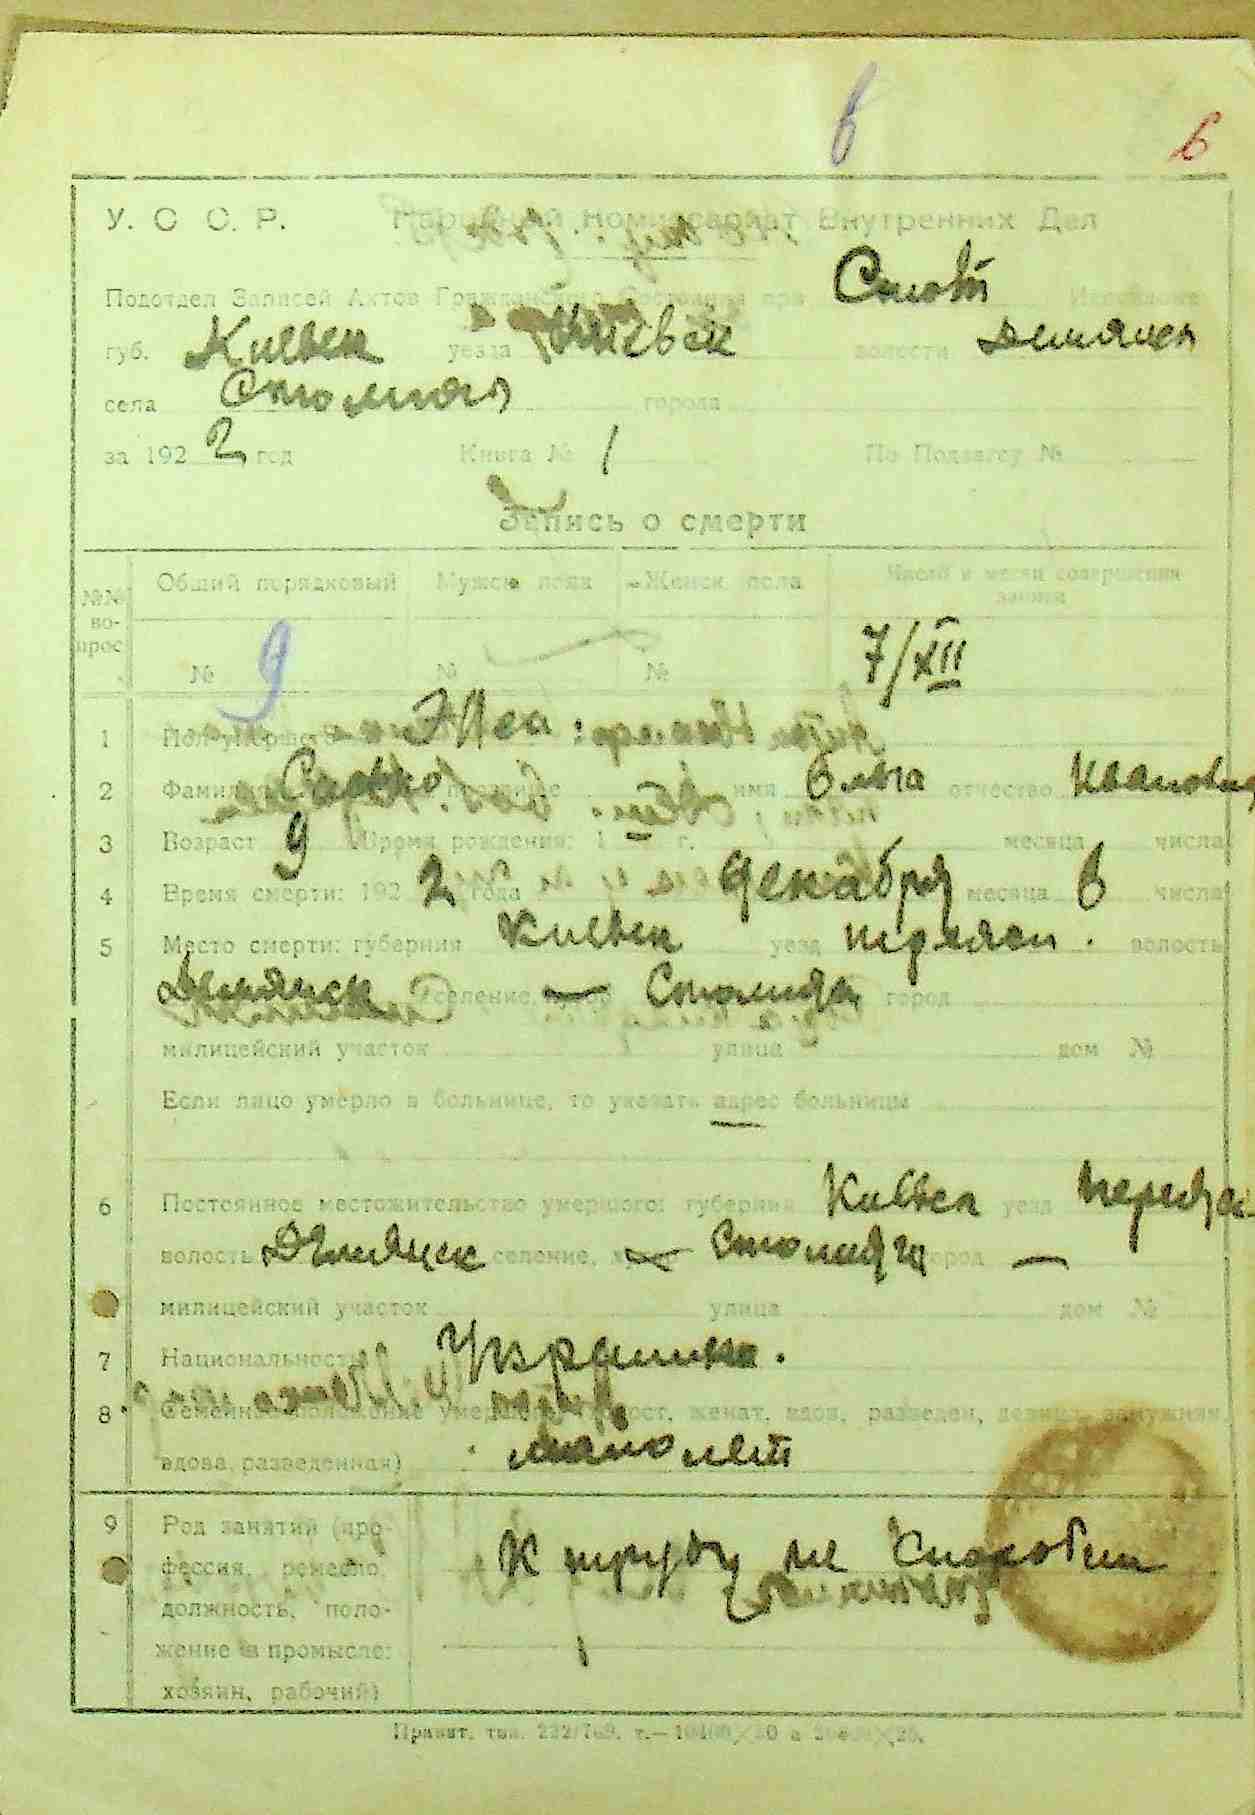 6 6
У. С С. Р. Народный Комиссариат Внутренних Дел
Подотдел Записей Актов Гражданского Состояния при Исполкоме
губ. Киевск уезда Киевск волости Демянск
села города
за 1922 год Книга № 1 По Подзагсу №
Запись о смерти
№№ вопрос Общий порядковый Мужск. пола Женск. пола Число и месяц совершения записи
№ 9 № № 7/XII
1 Пол умершего Жен
2 Фамилия прозвище имя Ольга отчество Ивановна
3 Возраст 9 Время рождения: 1 г. месяца числа
4 Время смерти: 1922 года декабря месяца 6 числа
5 Место смерти: губерния Киевск уезд волость
Демянск селение, хутор — город
милицейский участок улица дом №
Если лицо умерло в больнице, то указать адрес больницы
6 Постоянное местожительство умершего: губерния Киевск уезд
волость Демянск селение, город —
милицейский участок улица дом №
7 Национальность Украинка.
8 Семейное положение умершего холост, женат, вдов, разведен, девица, замужняя,
вдова, разведенная) малолет
9 Род занятий (про-
фессия, ремесло, К труду не способна
должность, поло-
жение в промысле:
хозяин, рабочий)